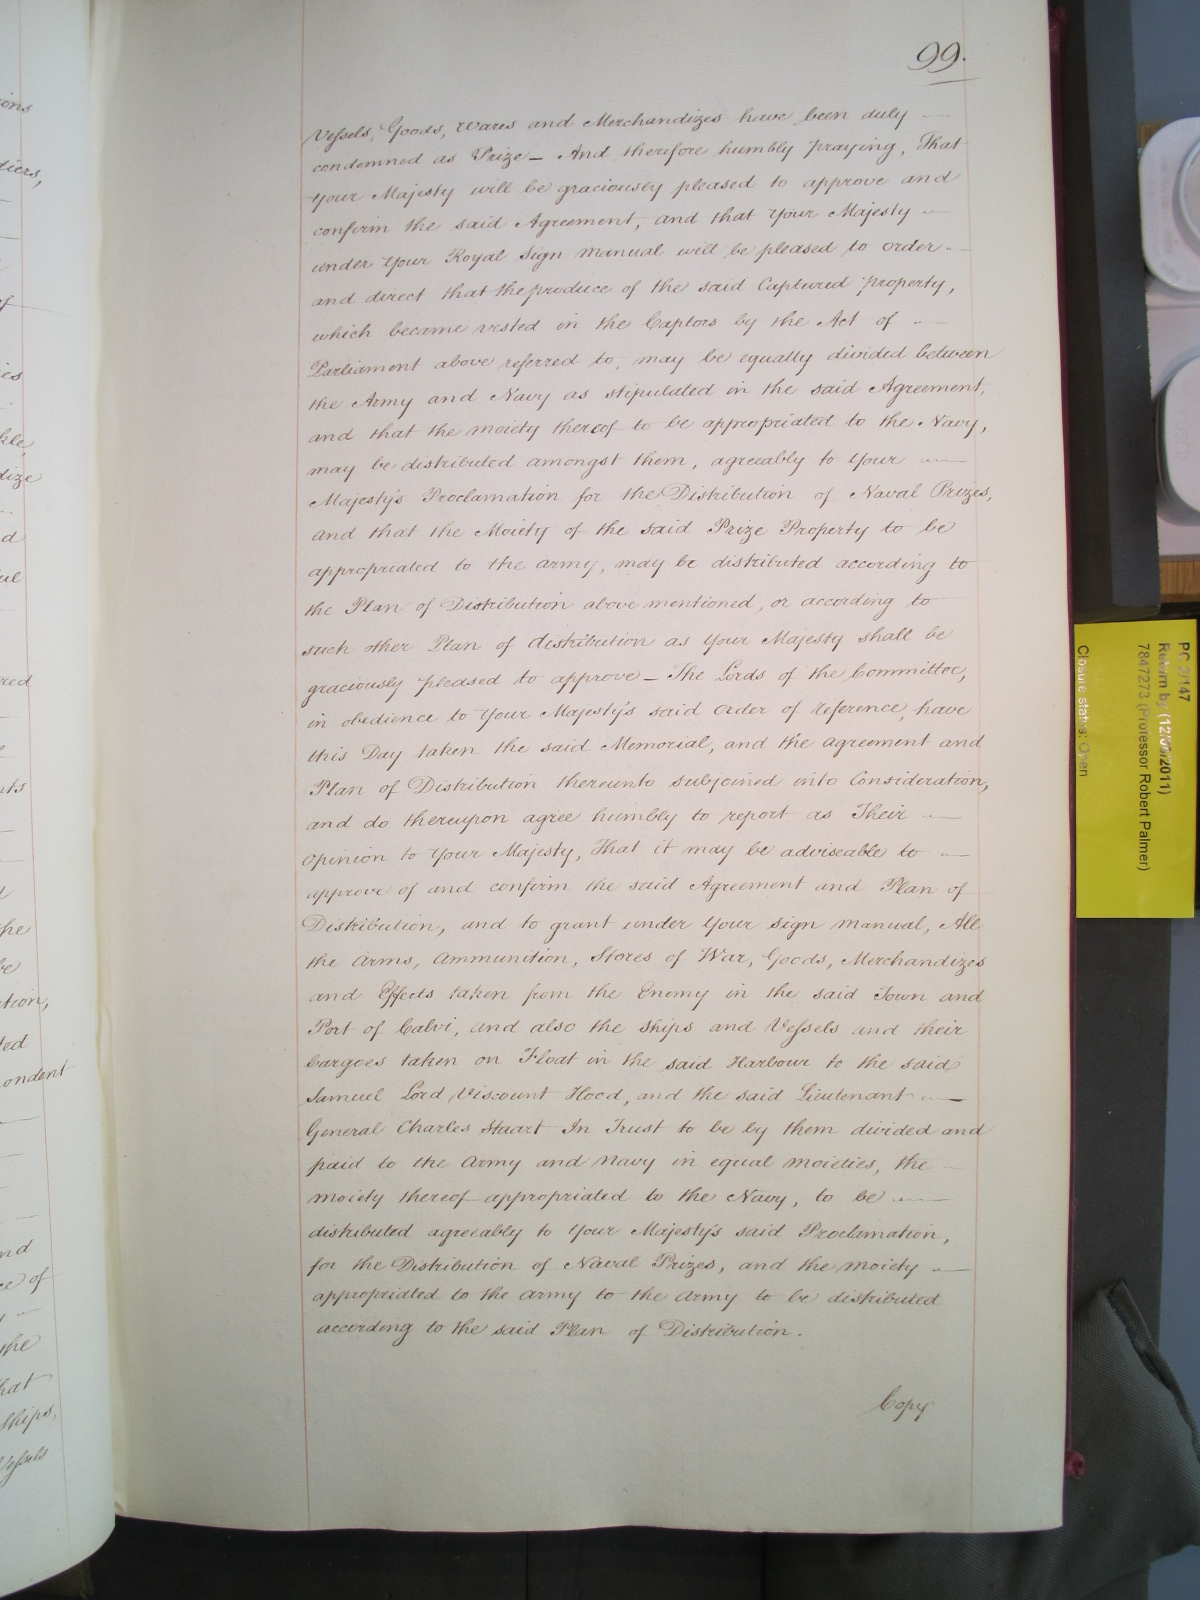 99.
Vessels, Goods, Wares and Merchandizes have been duly
condemned as Prize — And therefore humbly praying, That
Your Majesty will be graciously pleased to approve and
confirm the said Agreement, and that Your Majesty
under Your Royal Sign Manual will be pleased to order
and direct that the produce of the said Captured property,
which became vested in the Captors by the Act of
Parliament above referred to, may be equally divided between
the Army and Navy as stipulated in the said Agreement,
and that the moiety thereof to be appropriated to the Navy,
may be distributed amongst them, agreeably to Your
Majesty's Proclamation for the Distribution of Naval Prizes,
and that the Moiety of the said Prize Property to be
appropriated to the army, may be distributed according to
the Plan of Distribution above mentioned, or according to
such other Plan of distribution as Your Majesty shall be
graciously pleased to approve — The Lords of the Committee,
in obedience to Your Majesty's said Order of Reference, have
this Day taken the said Memorial, and the Agreement and
Plan of Distribution thereunto subjoined into Consideration,
and do thereupon agree humbly to report as Their
Opinion to Your Majesty, That it may be adviseable to
approve of and confirm the said Agreement and Plan of
Distribution, and to grant under Your Sign Manual, All
the Arms, Ammunition, Stores of War, Goods, Merchandizes
and Effects taken from the Enemy in the said Town and
Port of Calvi, and also the Ships and Vessels and their
Cargoes taken on Float in the said Harbour to the said
Samuel Lord Viscount Hood, and the said Lieutenant
General Charles Stuart In Trust to be by them divided and
paid to the Army and Navy in equal moieties, the
moiety thereof appropriated to the Navy, to be
distributed agreeably to Your Majesty's said Proclamation,
for the Distribution of Naval Prizes, and the moiety
appropriated to the Army to the Army to be distributed
according to the said Plan of Distribution.
Copy
PC 2/147
Return by (12/05/2011)
7847273 (Professor Robert Palmer)
Closure status: Open
ions
diers,
of
ies
kle,
dize
d
ul
red
nts
the
be
tion,
ted
ondent
and
ce of
the
hat
Ships,
Vessels